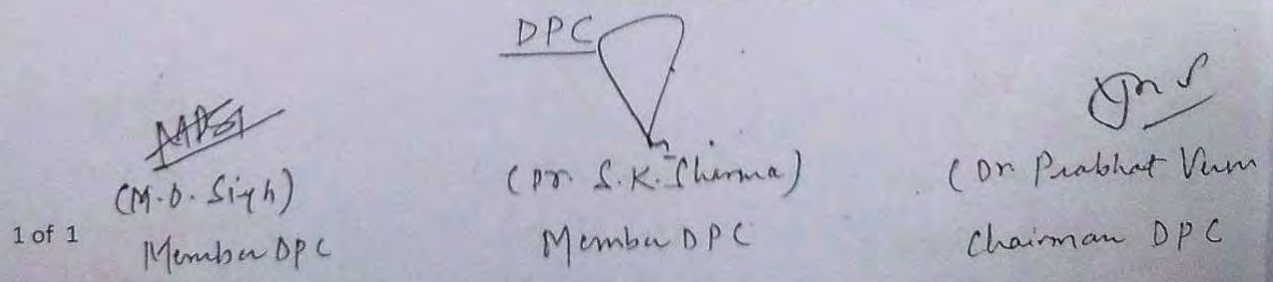 DPC
(M.D. Singh)
Member DPC
(Dr. S.K. Sharma)
Member DPC
(Dr. Prabhat Verm
Chairman DPC
1 of 1